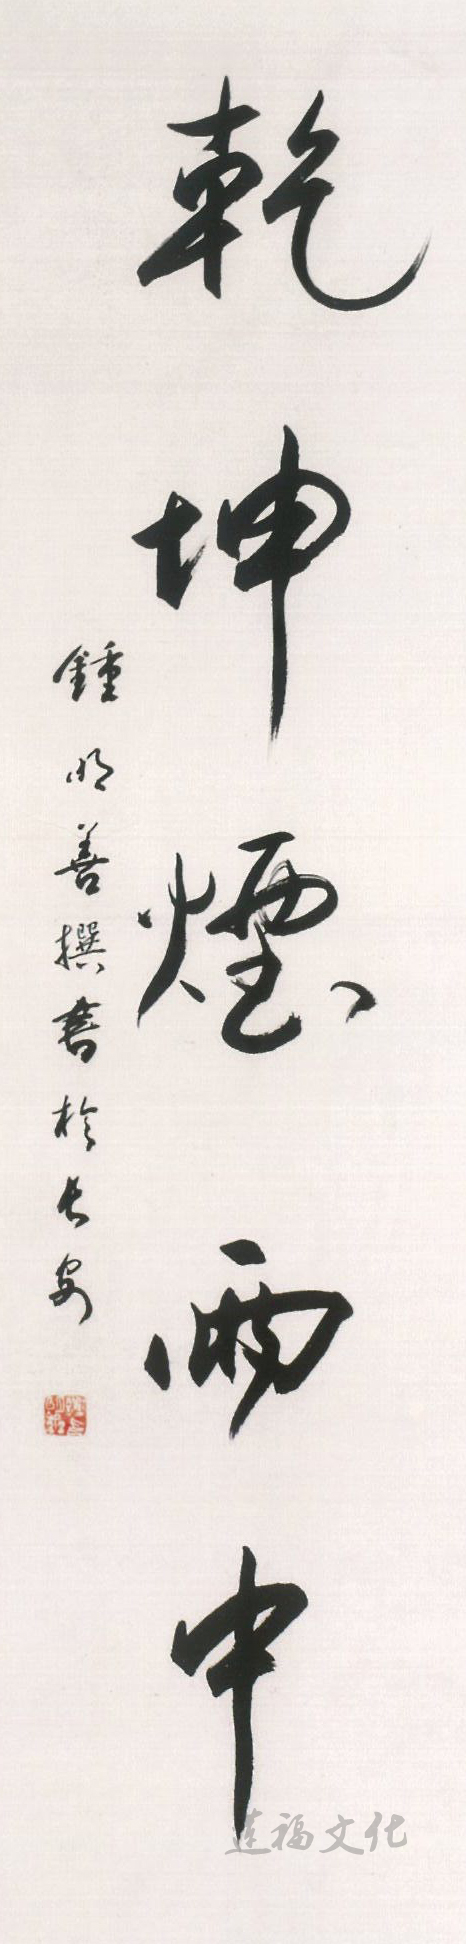 乾坤煙雨中
鍾明善撰書於長安
蓮福文化